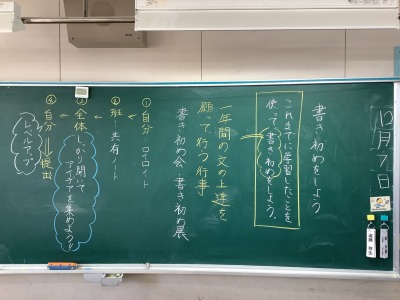 12月7日
書き初めをしよう
これまでに学習したことを
使って書き初めをしよう。
一年間の文の上達を
願って行う行事
書き初め会・書き初め展
①自分 ロイロノート
②班 共有ノート
③全体
しっかり聞いて
アイデアを集めよう!!
④自分⇒提出
レベルアップ